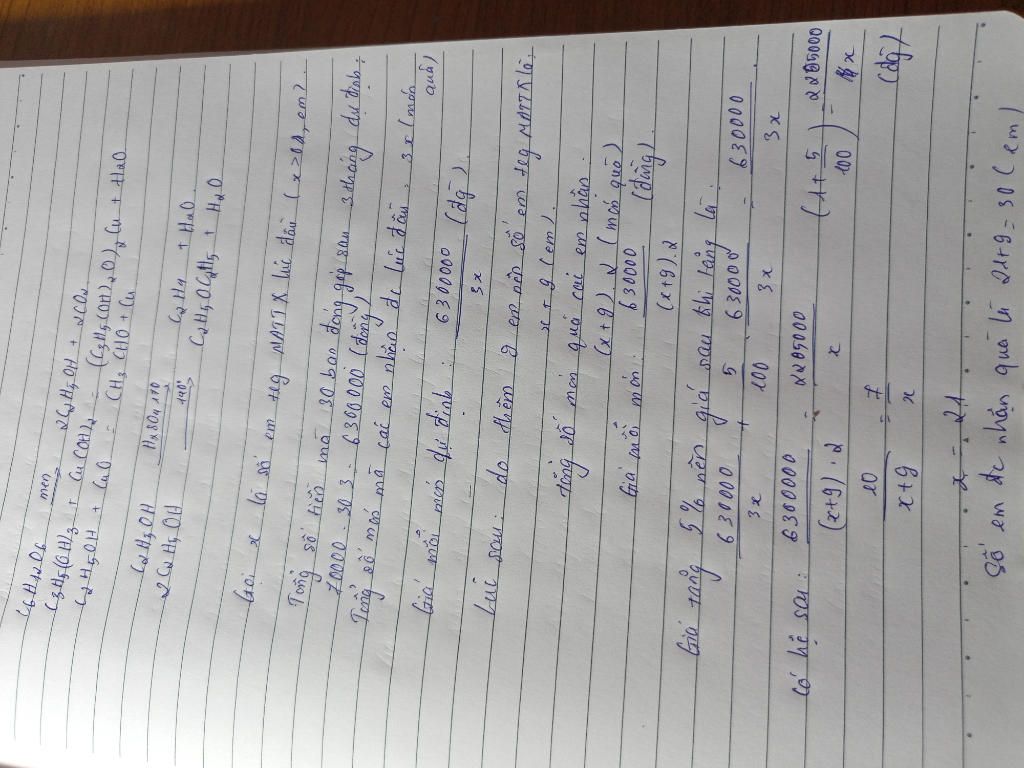 C6H12O6 men→ 2C2H5OH + 2CO2
C3H5(OH)3 + Cu(OH)2 - (C3H5(OH)2O)2Cu + H2O
C2H5OH + CuO - CH3CHO + Cu
C2H5OH C2H4 + H2O
2C2H5OH 140° C2H5OC2H5 + H2O
Gọi x là số em MATTX lúc đầu (x>1, em?
Tổng số tiền mà 30 bạn đóng góp sau 3 tháng dự định:
70000.30.3 = 6300000 (đồng)
Tổng số món mà các em nhận đc lúc đầu, 3x (món quà)
Giá mỗi món dự định: 6300000/3x (đg)
Lúc sau: do thêm 9 em nên số em MATTX là:
x+9 (em)
tổng số món quà các em nhận
(x+9).2 (món quà)
Giá mỗi món: 630000/(x+9).2 (đồng)
Giá tăng 5% nên giá sau khi tăng là:
630000/3x + 5/100 . 630000/3x = 630000/3x (1+5/100) = 2205000/x (đg)
Có hệ sau: 6300000/(x+9).2 = 2205000/x
10/x+9 = 7/x
x = 21
Số em đc nhận quà là 21+9=30 (em)